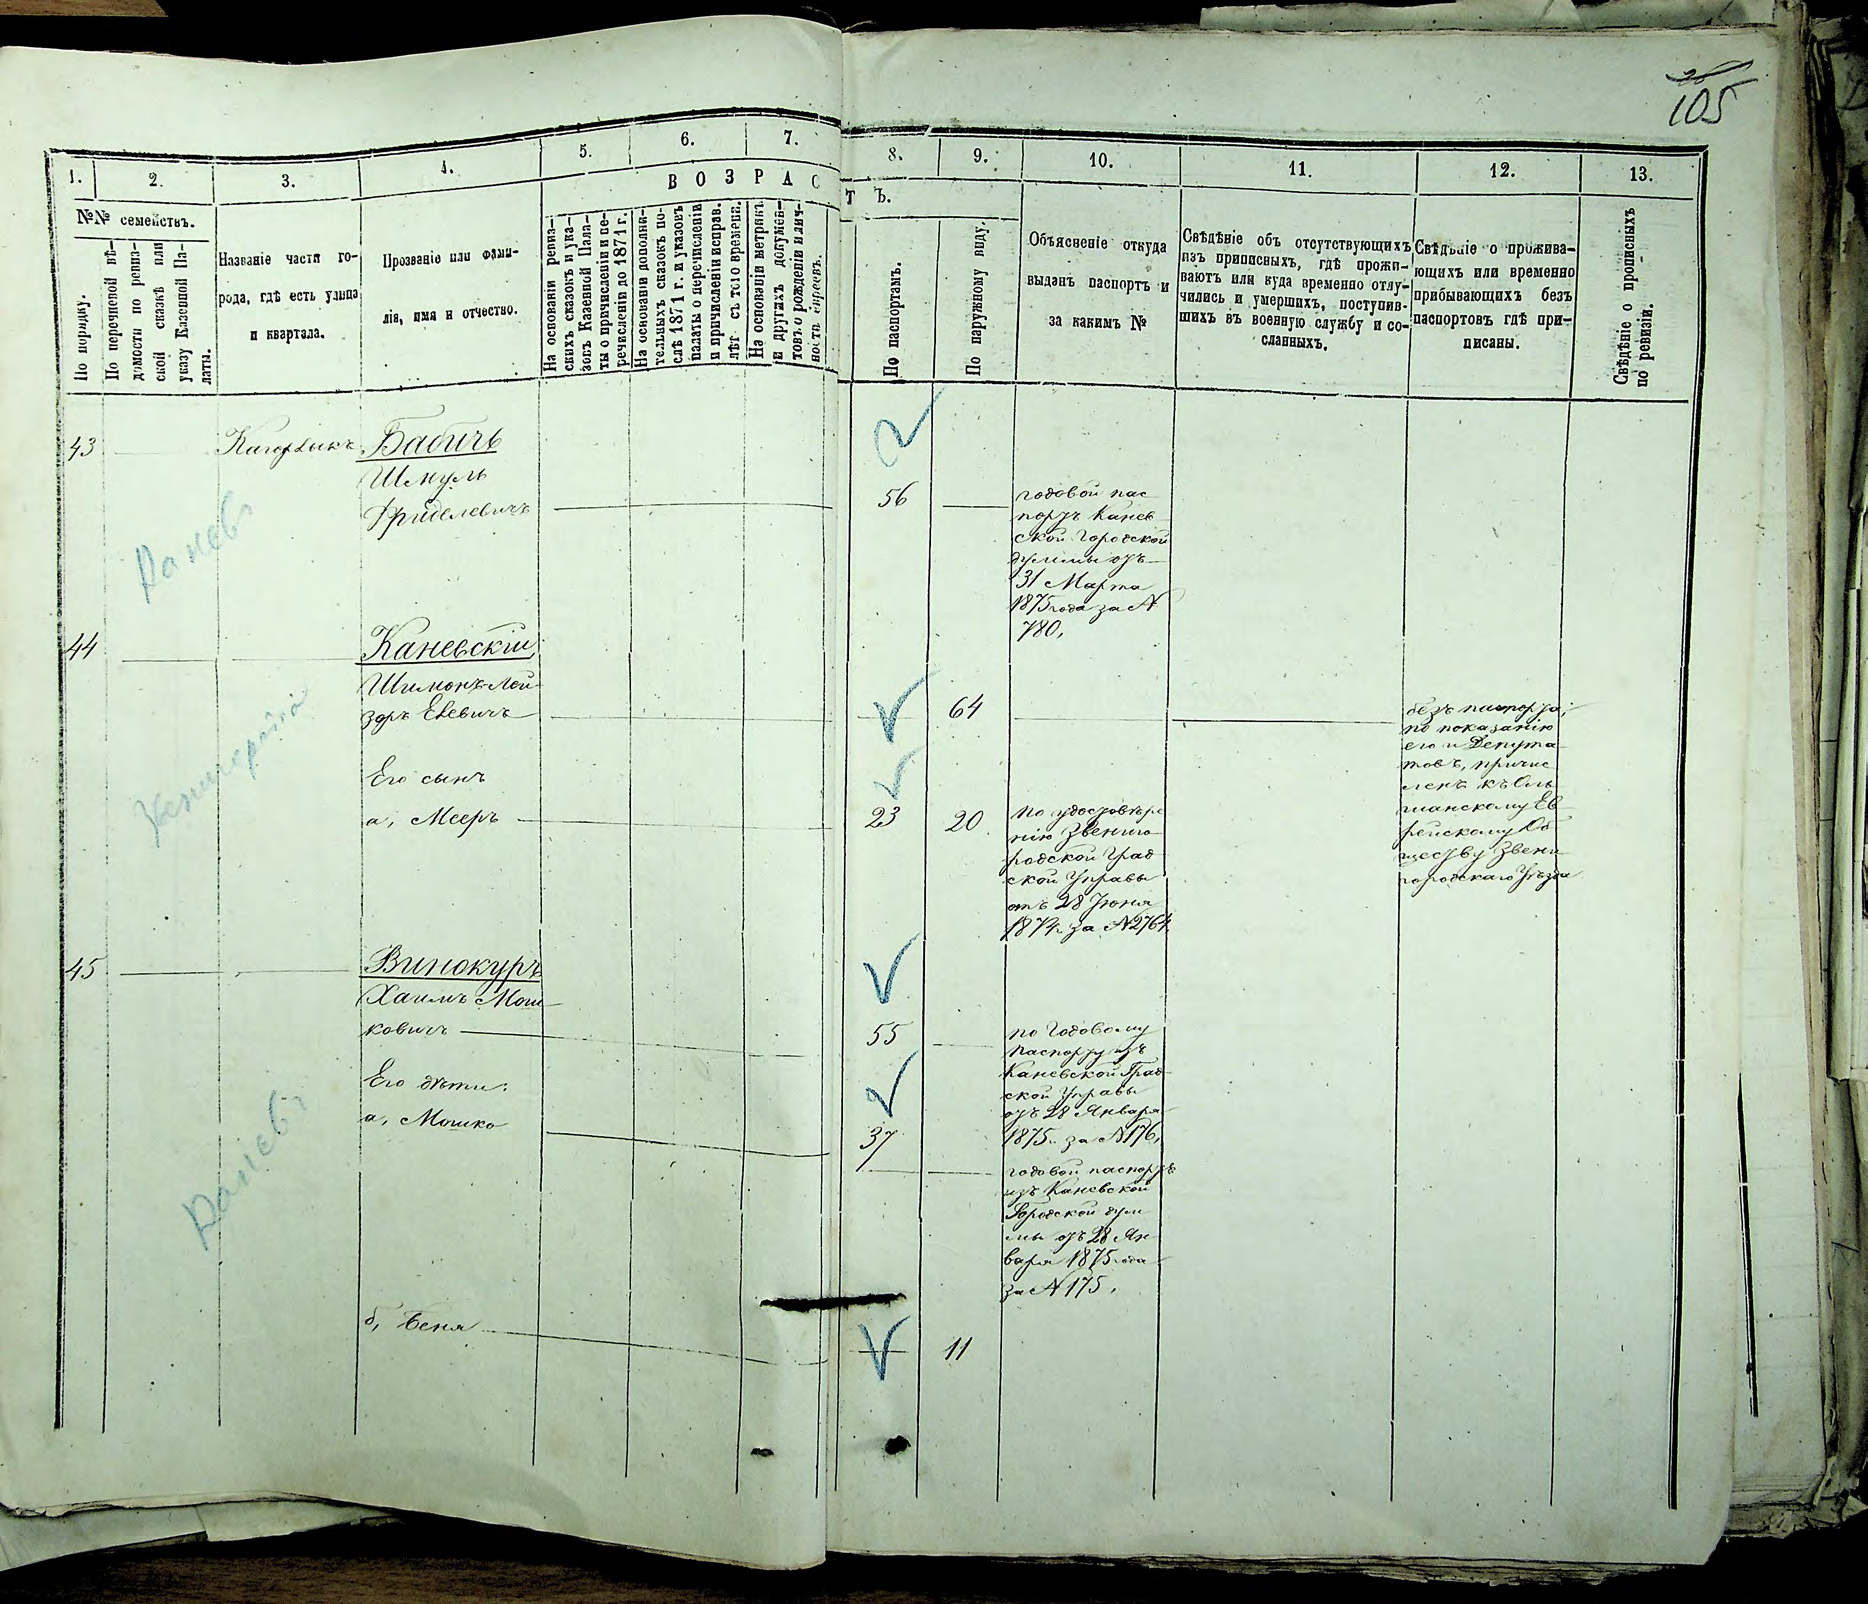 105
1.
2.
3.
4.
5.
6.
7.
8.
9.
10.
11.
12.
13.
В О З Р А С Т Ъ.
№№ семействъ.
По порядку.
По перечневой вѣ-
домости по ревиз-
ской сказкѣ или
указу Казенной Па-
латы.
Названіе части го-
рода, гдѣ есть улица
и квартала.
Прозваніе или фами-
лія, имя и отчество.
На основаніи ревиз-
скихъ сказокъ и ука-
зовъ Казенной Пала-
ты о причисленіи и пе-
речисленіи до 1871 г.
На основаніи дополни-
тельныхъ сказокъ по-
слѣ 1871 г. и указовъ
палаты о перечисленіи
и причисленіи исправ.
лѣт съ того времени.
На основаніи метрикъ
и другихъ докумен-
товъ о рожденіи и лич-
ности евреевъ.
По паспортамъ.
По наружному виду.
Объясненіе откуда
выданъ паспортъ и
за какимъ №
Свѣдѣніе объ отсутствующихъ
изъ приписныхъ, гдѣ прожи-
ваютъ или куда временно отлу-
чились и умершихъ, поступив-
шихъ въ военную службу и со-
сланныхъ.
Свѣдѣніе о прожива-
ющихъ или временно
прибывающихъ безъ
паспортовъ гдѣ при-
писаны.
Свѣдѣніе о прописныхъ
по ревизіи.
43
Кагорлыкъ
Бабичъ
Шмуль
Фриделевичъ
56
годовой пас
портъ Канев
ской Городской
думмы отъ
31 Марта
1875 года за №
780,
Каневъ
44
Каневскій
Шимонъ-Лей-
зоръ Евевичъ
64
безъ паспорта;
по показанію
его и Депута
товъ, причис
ленъ къ Оль
шанскому Ев
рейскому Об
ществу Звени
городскаго Уѣзда
Его сынъ
а, Мееръ
23
20
по удостовѣре
нію Звениго
родской Град
ской Управы
отъ 28 Іюня
1874 г. за №2764
45
Винокуръ
Хаимъ Мош-
ковичъ
55
по Годовому
паспорту изъ
Каневской Град
ской Управы
отъ 28 Января
1875 г. за №176,
Его дѣти:
а, Мошко
37
годовой паспортъ
изъ Каневской
Городской дум
мы отъ 28 Ян
варя 1875 года
за №175,
Каневъ
б, Беня
11